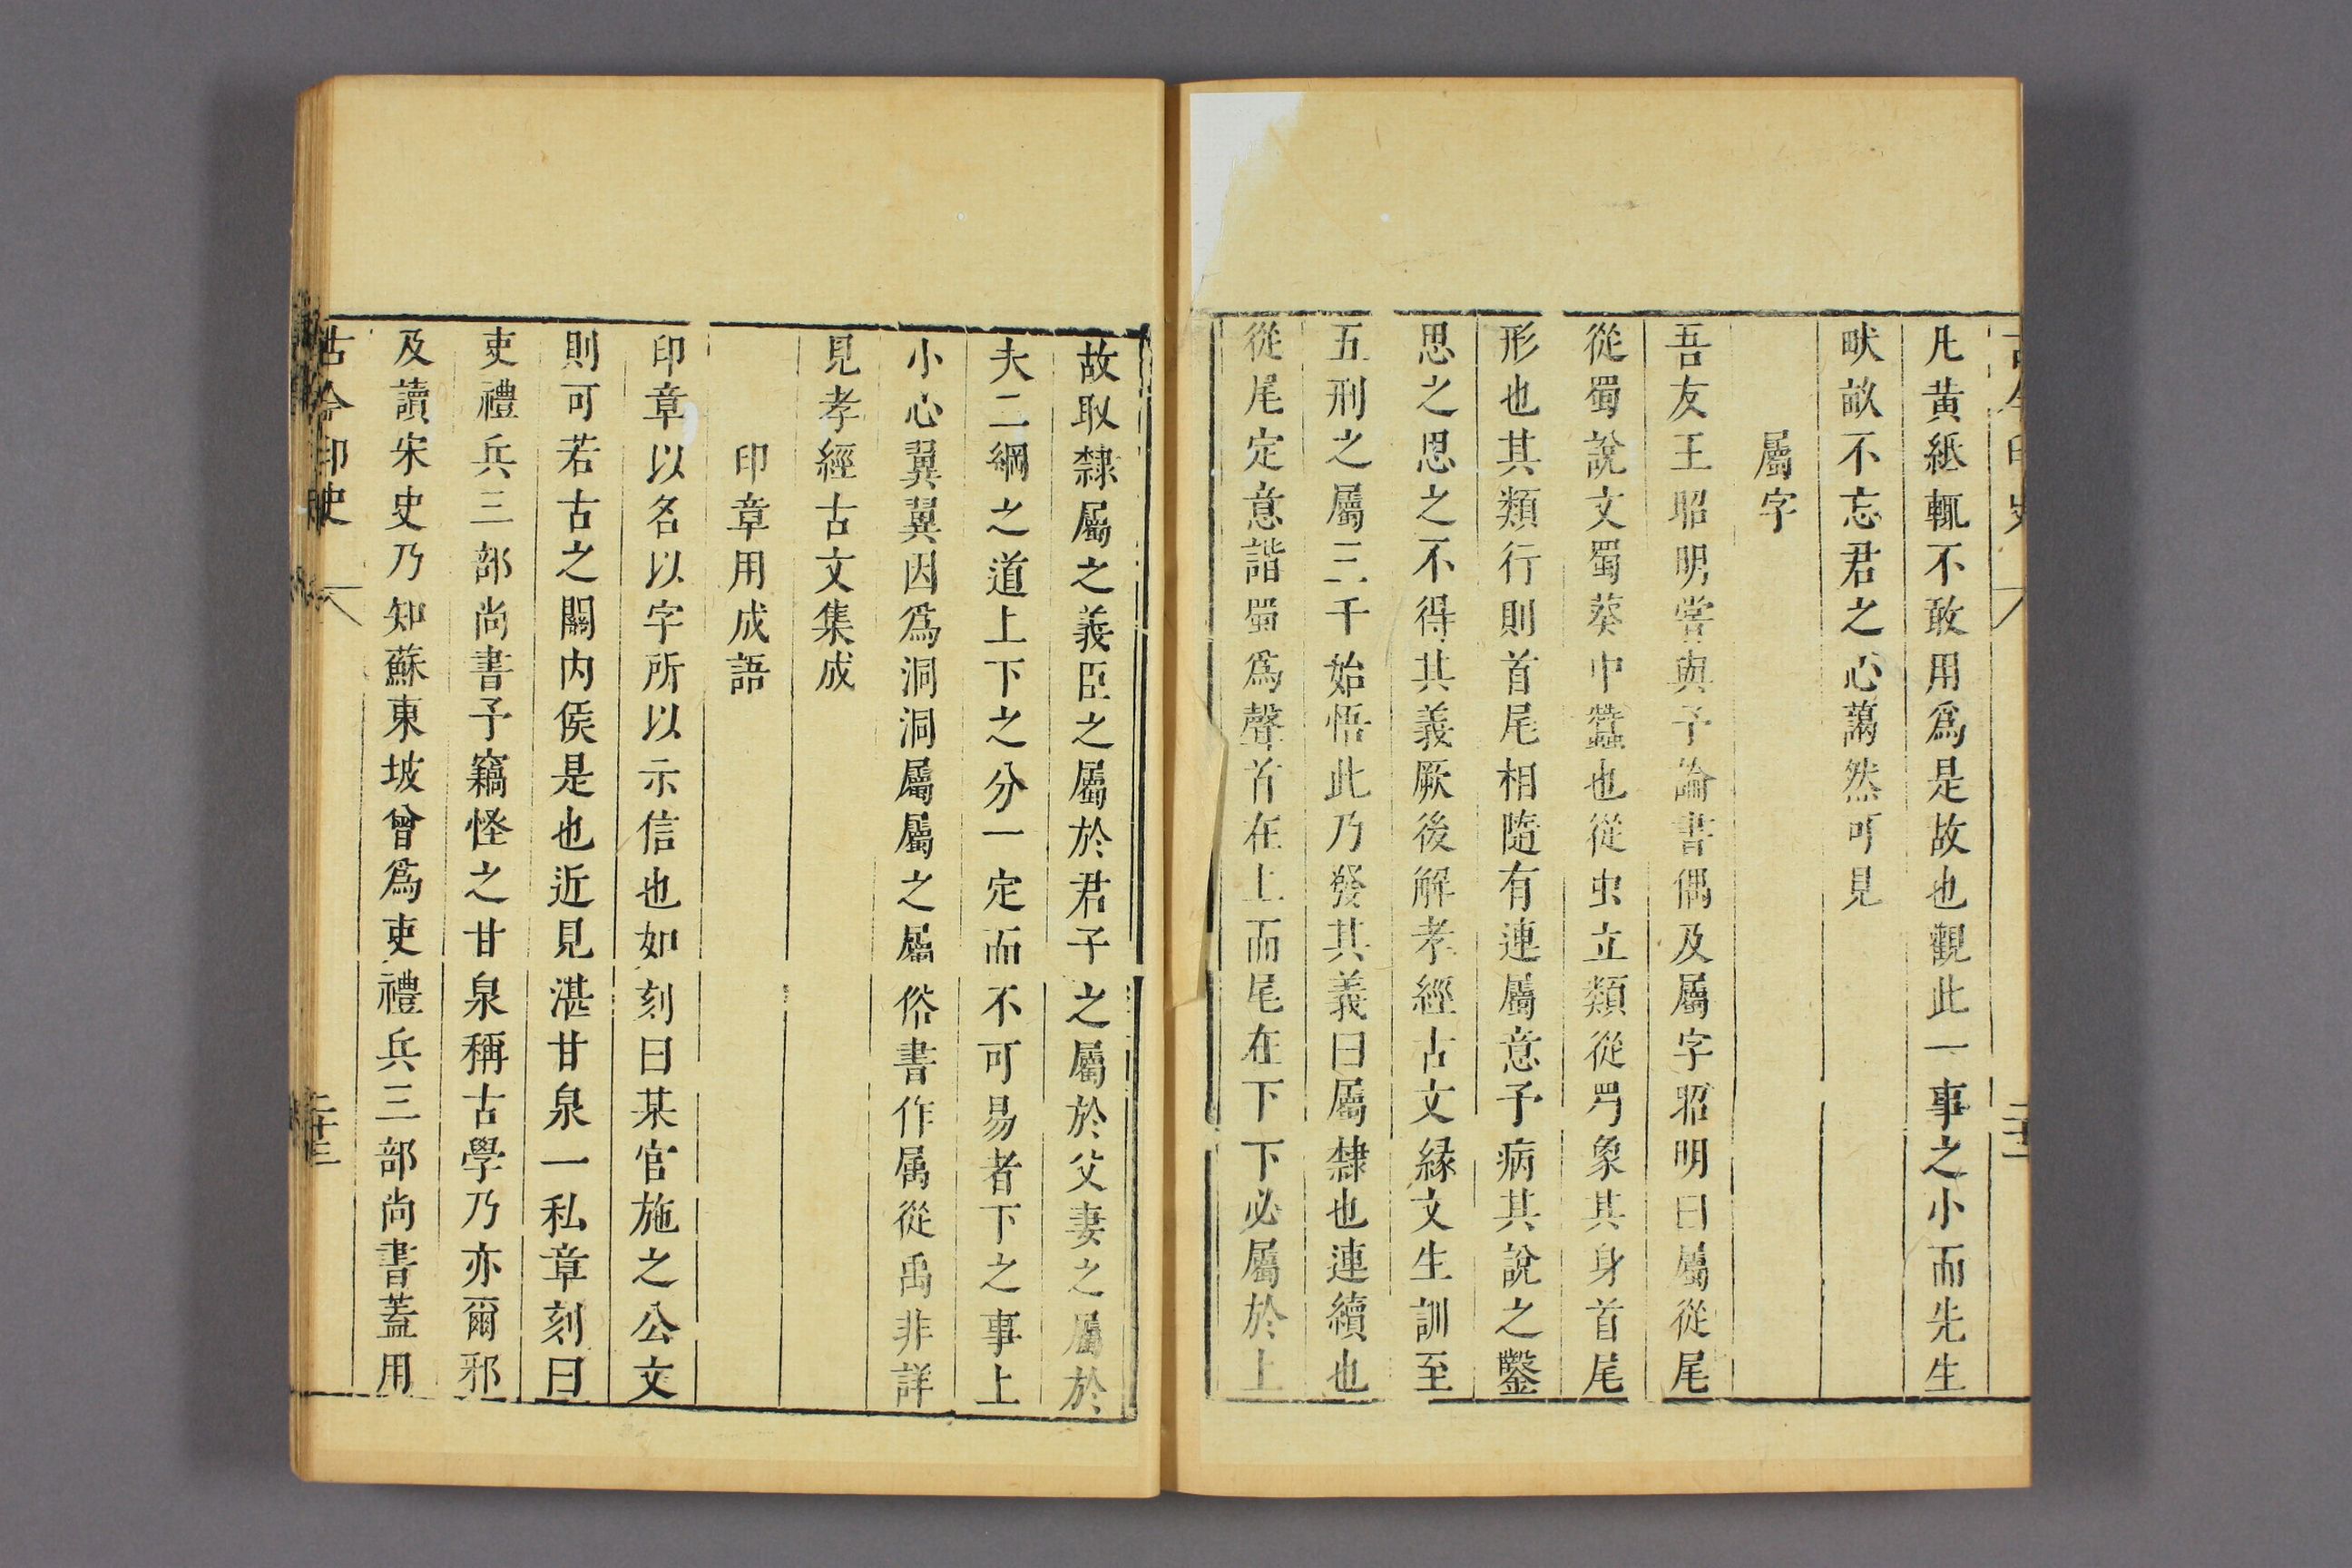 凡黄紙輒不敢用爲是故也觀此一事之小而先生
畎畝不忘君之心藹然可見
屬字
吾友王昭明嘗與予論書偶及屬字昭明曰屬從尾
從蜀說文蜀葵中蠶也從虫立類從罒象其身首尾
形也其類行則首尾相隨有連屬意予病其說之鑿
思之思之不得其義厥後解孝經古文緣文生訓至
五刑之屬三千始悟此乃發其義曰屬隸也連續也
從尾定意諧蜀爲聲首在上而尾在下下必屬於上
故取隸屬之義臣之屬於君子之屬於父妻之屬於
夫二綱之道上下之分一定而不可易者下之事上
小心翼翼因爲洞洞屬屬之屬俗書作属從禹非詳
見孝經古文集成
印章用成語
印章以名以字所以示信也如刻曰某官施之公文
則可若古之關内侯是也近見湛甘泉一私章刻曰
吏禮兵三部尚書予竊怪之甘泉稱古學乃亦爾邪
及讀宋史乃知蘇東坡曾爲吏禮兵三部尚書蓋用
古今印史